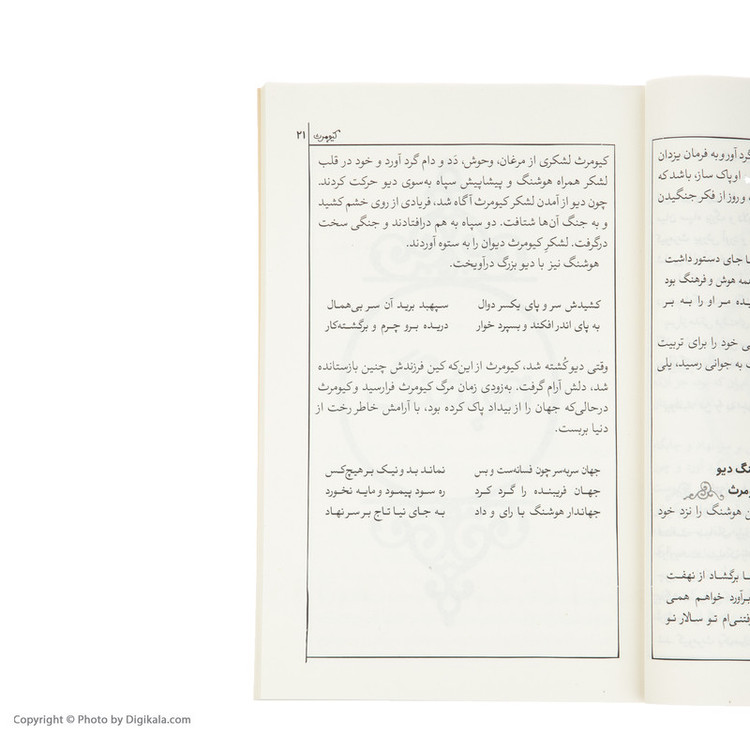 گرد آورو به فرمان یزدان
او پاک ساز، باشد که
و روز از فکر جنگیدن
جای دستور داشت
همه هوش و فرهنگ بود
مر او را به بر
خود را برای تربیت
به جوانی رسید، یلی
دیو
هوشنگ را نزد خود
برگشاد از نهفت
برآورد خواهم همی
رفتنی‌ام تو سالار نو
کیومرث ۲۱
کیومرث لشکری از مرغان، وحوش، دَد و دام گرد آورد و خود در قلب
لشکر همراه هوشنگ و پیشاپیش سپاه به‌سوی دیو حرکت کردند.
چون دیو از آمدن لشکر کیومرث آگاه شد، فریادی از روی خشم کشید
و به جنگ آن‌ها شتافت. دو سپاه به هم درافتادند و جنگی سخت
درگرفت. لشکرِ کیومرث دیوان را به ستوه آوردند.
هوشنگ نیز با دیو بزرگ درآویخت.
کشیدش سر و پای یکسر دوال سپهبد برید آن سر بی‌همال
به پای اندر افکند و بسپرد خوار دریده برو چرم و برگشته‌کار
وقتی دیو کُشته شد، کیومرث از این‌که کین فرزندش چنین بازستانده
شد، دلش آرام گرفت. به‌زودی زمان مرگ کیومرث فرارسید و کیومرث
درحالی‌که جهان را از بیداد پاک کرده بود، با آرامش خاطر رخت از
دنیا بربست.
جهان سربه‌سر چون فسانه‌ست و بس نماند بد و نیک بر هیچ‌کس
جهان فریبنده را گرد کرد ره سود پیمود و مایه نخورد
جهاندار هوشنگ با رای و داد به جای نیا تاج بر سر نهاد
Copyright © Photo by Digikala.com